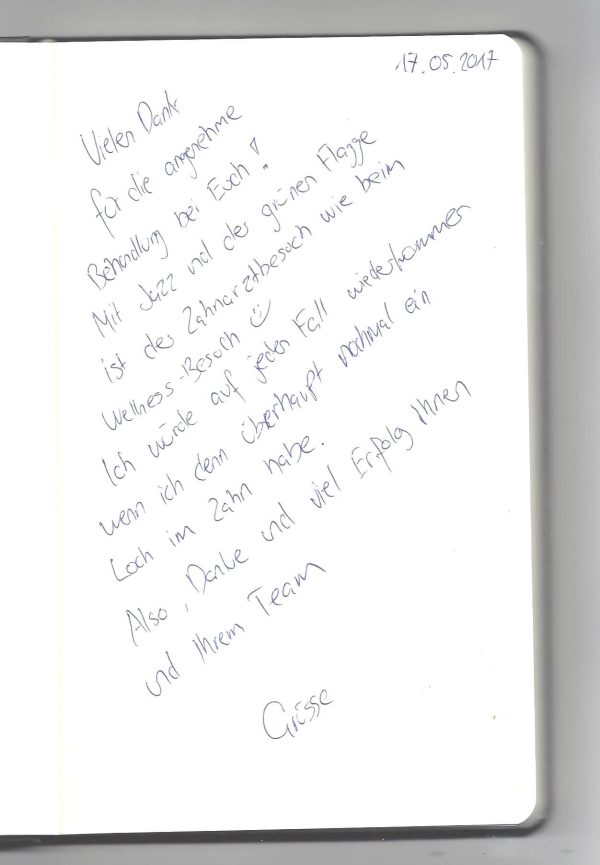 17.05.2017
Vielen Dank
für die angenehme
Behandlung bei Euch!
Mit Jazz und der grünen Flagge
ist der Zahnarztbesuch wie beim
Wellness-Besuch ☺
Ich würde auf jeden Fall wiederkommen
wenn ich denn überhaupt nochmal ein
Loch im Zahn habe.
Also, Danke und viel Erfolg Ihnen
und Ihrem Team
Grüsse